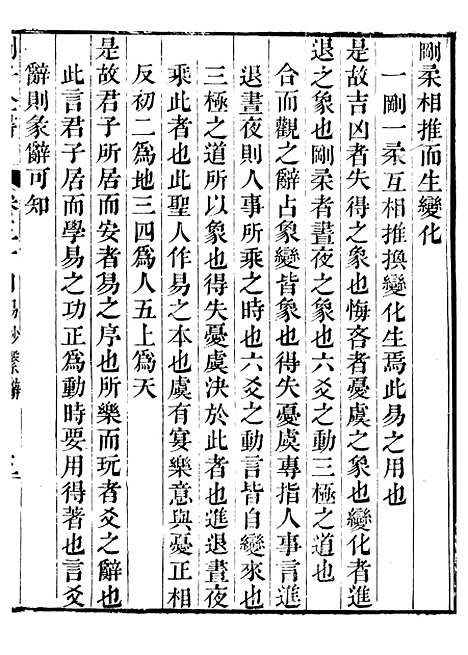 剛柔相推而生變化
一剛一柔互相推換變化生焉此易之用也
是故吉凶者失得之象也悔吝者憂虞之象也變化者進
退之象也剛柔者晝夜之象也六爻之動三極之道也
合而觀之辭占象變皆象也得失憂虞專指人事言進
退晝夜則人事所乘之時也六爻之動言皆自變來也
三極之道所以象也得失憂虞決於此者也進退晝夜
乘此者也此聖人作易之本也虞有宴樂意與憂正相
反初二爲地三四爲人五上爲天
是故君子所居而安者易之序也所樂而玩者爻之辭也
此言君子居而學易之功正爲動時要用得著也言爻
辭則象辭可知
易抄繫辭